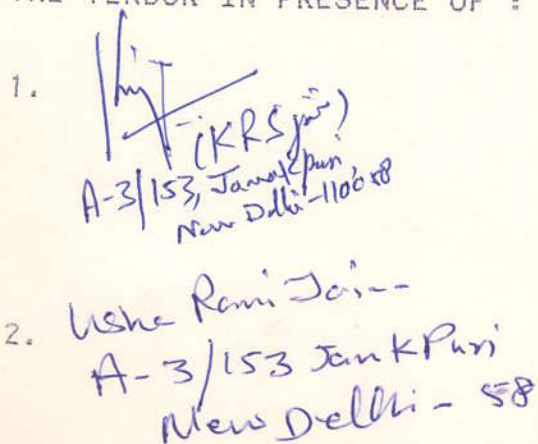 THE VENDOR IN PRESENCE OF :
1.
(KRS Jain)
A-3/153, Janakpuri,
New Delhi-110058
2. Usha Rani Jain
A-3/153 JankPuri
New Delhi - 58